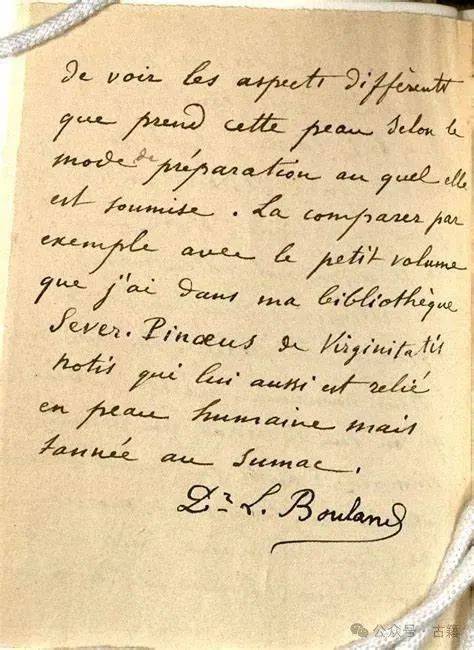 de voir les aspects différents
que prend cette peau selon le
mode de préparation au quel elle
est soumise. La comparer par
exemple avec le petit volume
que j'ai dans ma bibliothèque
Sever. Pinæus de Virginitatis
notis qui lui aussi est relié
en peau humaine mais
tannée au sumac.
Dr L. Bouland
公众号·古籍